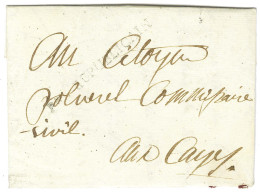 Au Citoyen
polverel Commissaire
civil.
aux Cayes